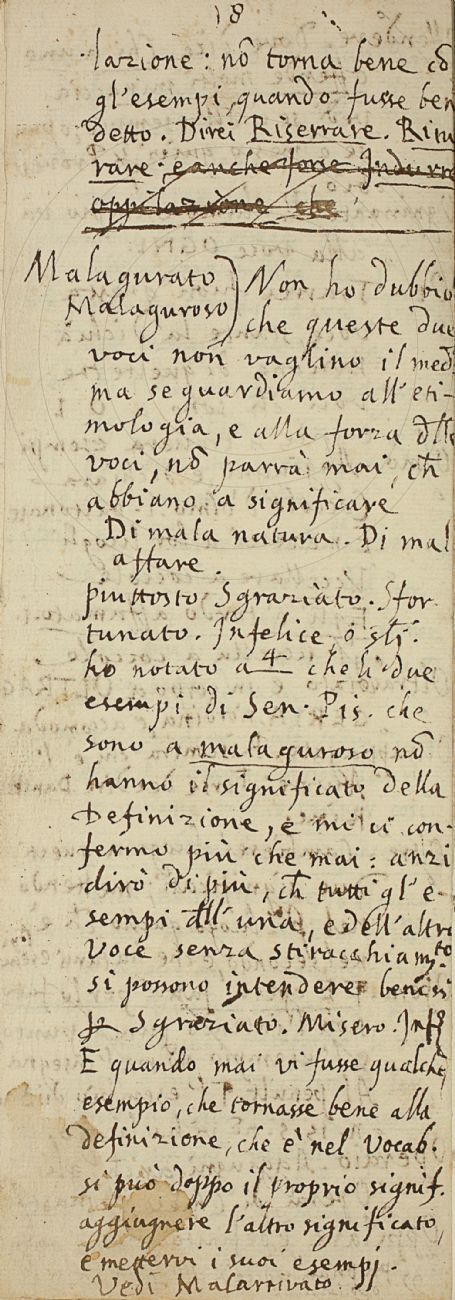 18
lazione: nõ torna bene cõ
gl'esempi, quando fusse ben
detto. Direi Riserrare. Ritu
rare. e anche forse Indurre
oppilazione che
Malagurato
Malaguroso) Non ho dubbio
che queste due
voci non vaglino il med.
ma se guardiamo all'eti-
mologia, e alla forza dll
voci, nõ parrà mai, ch̃
abbiano a significare
Di mala natura. Di mal
affare.
piuttosto Sgraziato. Sfor
tunato. Infelice, ò
ho notato a 4 che li due
esempi di Sen. Pis. che
sono a malaguroso nõ
hanno il significato della
Definizione, e mi ci con-
fermo più che mai: anzi
dirò di più, ch̃ tutti gl'e-
sempi dll'una, e dell'altra
voce, senza stiracchiamto
si possono intendere beniss
per Sgraziato. Misero.
E quando mai vi fusse qualche
esempio, che tornasse bene alla
definizione, che è nel Vocab.
si può doppo il proprio signif.
aggiugnere l'altro significato,
e mettervi i suoi esempj.
Vedi Malarrivato